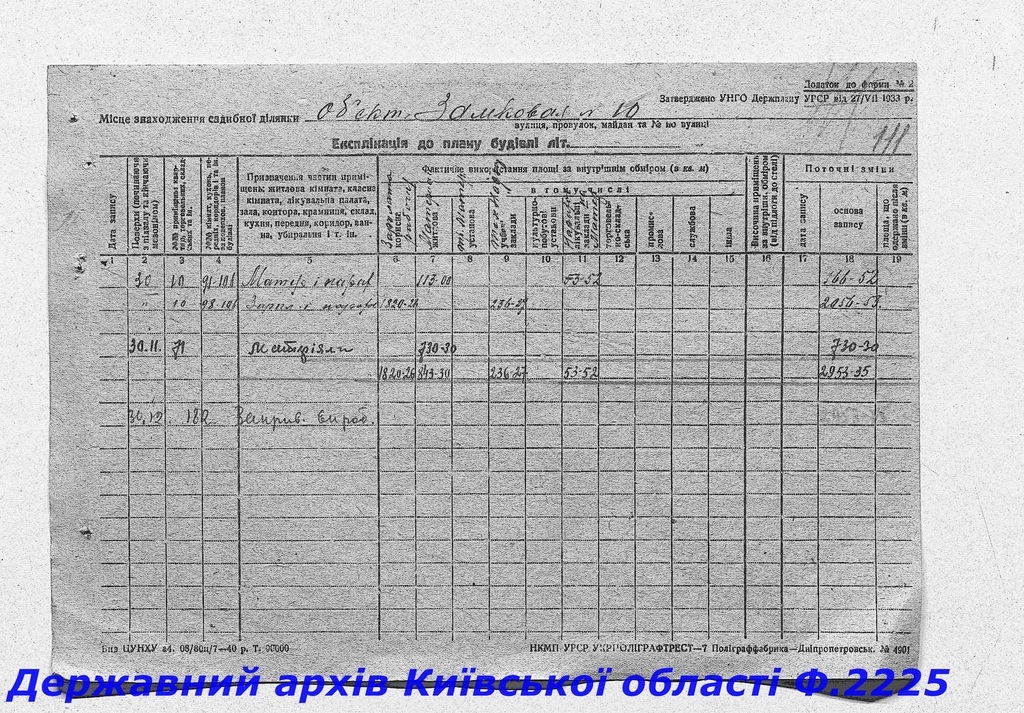 Додаток до форми № 2
Затверджено УНГО Держплану УРСР від 27/VII 1933 р.
Місце знаходження садибної ділянки об'єкт. Замковая № 10
вулиця, провулок, майдан та № по вулиці
111
Експлікація до плану будівлі літ.
Дата запису
Поверхи (починаючи з підвалу та кінчаючи мезоніном)
Призначення частин приміщень: житлова кімната, класна кімната, лікувальна палата, зала, контора, крамниця, склад, кухня, передня, коридор, ванна, убиральня і т. ін.
Фактичне використання площі за внутрішнім обміром (в кв. м)
в тому числі
корисне
житлова
установа
учбові заклади
культурно-побутові установи
лікувальні заклади
торговельно-складська
промислова
службова
інша
Височина приміщень за внутрішн. обміром (від підлоги до стелі)
Поточні зміни
дата запису
основа запису
площа, що одержано після зміни (в кв. м)
1 2 3 4 5 6 7 8 9 10 11 12 13 14 15 16 17 18 19
30 10 91-101 113-00 53-52 166-52
" 10 98-106 1820-26 236-27 2056-53
30.11. 71 Матеріяли 730-30 730-30
1820-26 843-30 236-27 53-52 2953-35
30.12. 182
Вид ЦУНХУ а4. 08/80ц/7—40 р. Т. 90000
НКМП УРСР УКРПОЛІГРАФТРЕСТ—7 Поліграффабрика—Дніпропетровськ. № 4901
Державний архів Київської області Ф.2225